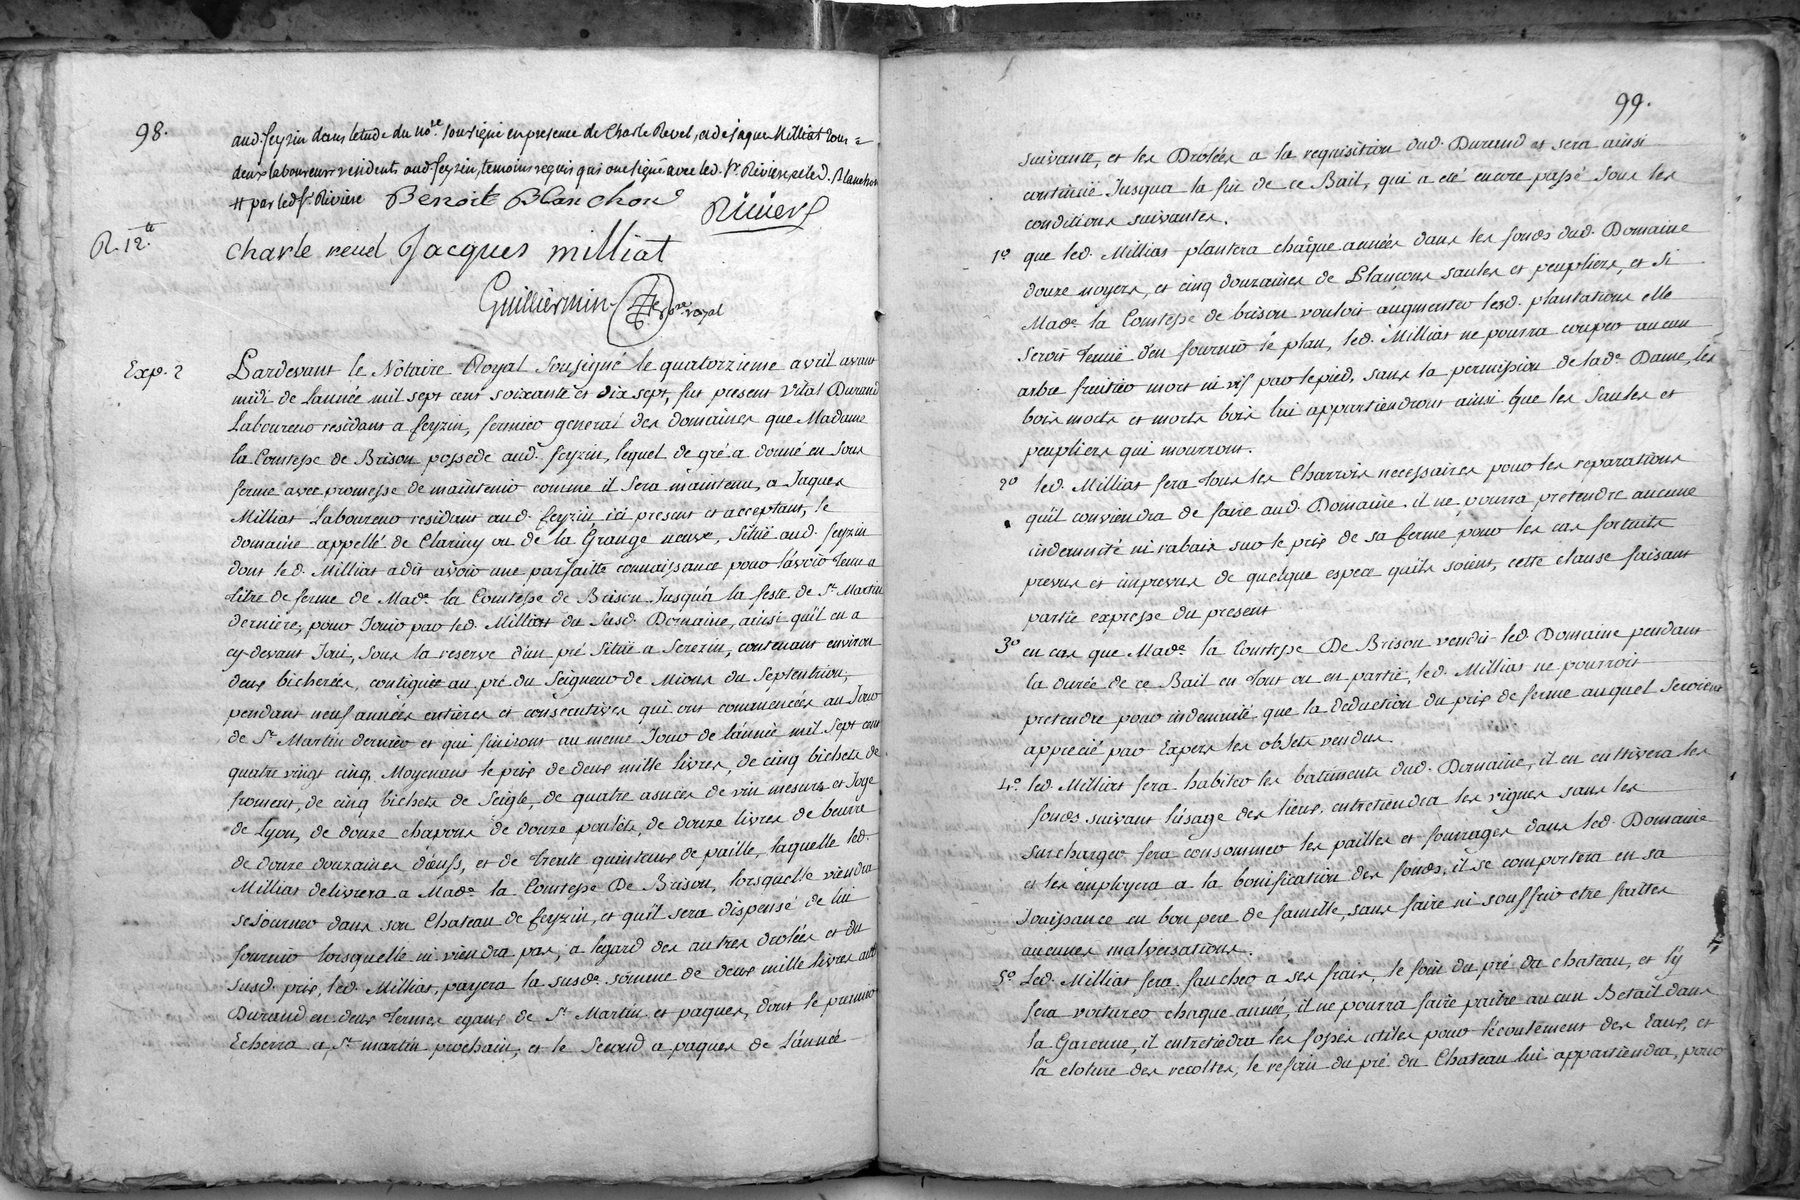 98.
aud. feyzin dans letude du no.re sousigné en presence de Charle Revel, et de jaque Milliat tous=
deux laboureurs residents aud. feyzin, temoins requis qui ont signé avec led. Sr. Riviere, et led. Blanchon
# par led. Sr. Rivière Benoit Blanchon Riviere
R. 12.te
charle revel Jacques milliat
Guilliermin no.re royal
Exp. 2
Pardevant le Notaire Royal Sousigné le quatorzieme avril avant
midi de L'année mil sept cent soixante et dix sept, fut present Vital Durand
Laboureur residant a feyzin, fermier general des domaines que Madame
la Comtesse de Brison possede aud. feyzin, lequel de gré a donné en sous
ferme avec promesse de maintenir comme il sera maintenu, a Jaques
Milliat Laboureur residant aud. feyzin, ici present et acceptant, le
domaine appellé de Clariny ou de la Grange neuve, Situé aud. feyzin
dont led. Milliat a dit avoir une parfaitte connaissance pour l'avoir tenu a
titre de ferme de Made. la Comtesse de Brison Jusqu'a la feste de St. Martin
derniere, pour Jouir par led. Milliat du susd. Domaine, ainsi qu'il en a
cy-devant Joui, Sous la reserve d'un pré Situé a Serezin, contenant environ
deux bicherées, contiguës au pré du Seigneur de Mions du Septentrion,
pendant neuf années entières et consecutives qui ont commencées au Jour
de St. Martin dernier et qui finiront au meme Jour de l'année mil Sept cent
quatre vingt cinq. Moyenant le prix de deux mille livres, de cinq bichets de
froment, de cinq bichets de Seigle, de quatre asnées de vin mesure et Joge
de Lyon, de douze chapons de douze poulets, de douze livres de beurre
de douze douzaines d'oeufs, et de trente quinteaux de paille, laquelle led.
Milliat delivrera a Made. la Comtesse De Brison, lorsquelle viendra
sejourner dans son Chateau de feyzin, et qu'il sera dispensé de lui
fournir lorsquelle ni viendra pas, a legard des autres drolées et du
susd. prix, led. Milliat, payera la susde. somme de deux mille livres audt.
Durand en deux termes egaux de St. Martin et paques, dont le premier
Echerra a St. martin prochain, et le Second a paques de L'année
99.
suivante, et les Drolées a la requisition dud. Durand et sera ainsi
continué Jusqua la fin de ce Bail, qui a été encore passé sous les
conditions suivantes.
1o que led. Milliat plantera chaque année dans les fonds dud. Domaine
douze noyers, et cinq douzaines de Plançons saules et peupliers, et si
Made. la Comtesse de brison vouloit augmenter lesd. plantations elle
seroit tenuë d'en fournir le plan, led. Milliat ne pourra couper aucun
arbre fruitier mort ni vif par le pied, sans la permission de lade. Dame, les
bois morts et morts bois lui appartiendront ainsi que les saules et
peupliers qui mourront.
2o led. Milliat fera tous les Charrois necessaires pour les reparations
qu'il conviendra de faire aud. Domaine. il ne pourra pretendre aucune
indemnité ni rabais sur le prix de sa ferme pour les cas fortuits
prevus et imprevus de quelque espece qu'ils soient, cette clause faisant
partie expresse du present
3o en cas que Made. la Comtesse De Brison vendit led. Domaine pendant
la durée de ce Bail en tout ou en partie, led. Milliat ne pourroit
pretendre pour indemnité que la deduction du prix de ferme auquel Seroient
apprecié par Expers les objets vendus.
4o. led. Milliat fera habiter les batiments dud. Domaine, il en cultivera les
fonds suivant l'usage des lieux, entretiendra les vignes sans les
surcharger fera consommer les pailles et fourrages dans led. Domaine
et les employera a la bonification des fonds, il se comportera en sa
Jouissance en bon pere de famille, sans faire ni souffrir etre faittes
aucunes malversations.
5o Led. Milliat fera faucher a ses frais, le foin du pré du chateau, et l'y
fera voiturer chaque année, il ne pourra faire paitre aucun Betail dans
la Garenne, il entretiedra les fossés utiles pour l'écoulement des Eaux, et
la cloture des recoltes, le refoin du pré du Chateau lui appartiendra, pour